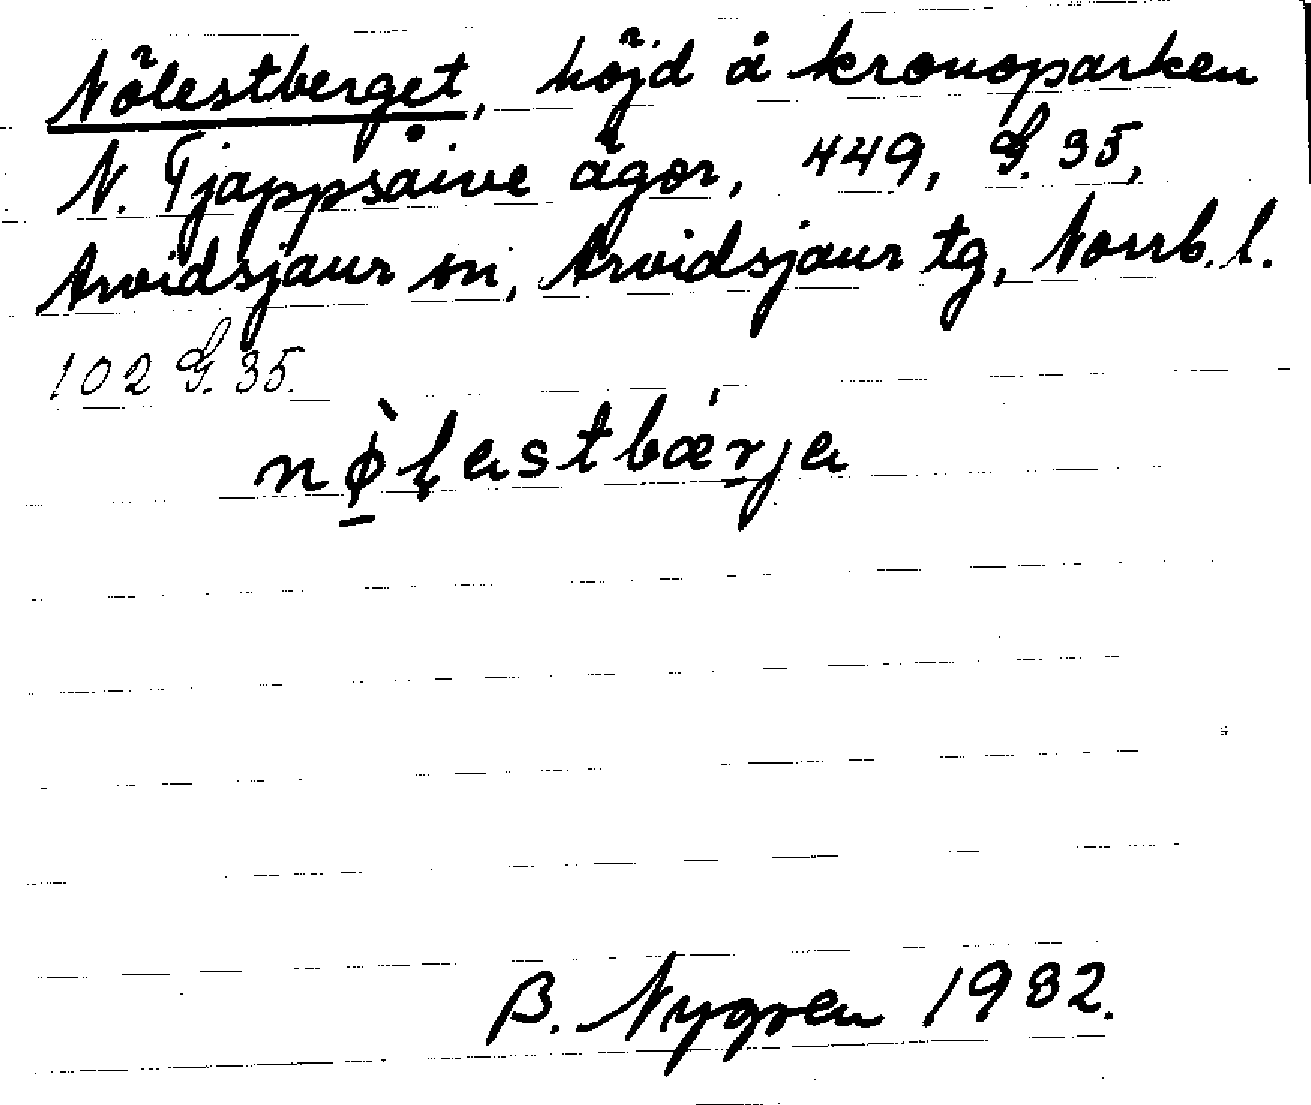 Nölestberget, höjd å kronoparken
N. Tjappsåive ägor, 449, G. 35,
Arvidsjaur sn, Arvidsjaur tg, Norrb. l.
102 G. 35.
nø̀lastbǽrja
B. Nygren 1932.